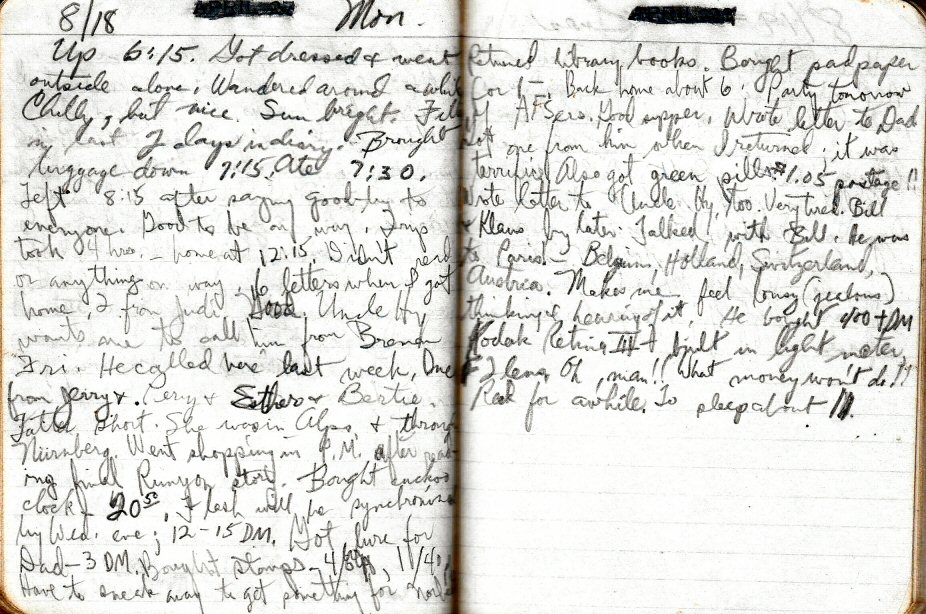 8/18 Mon.
Up 6:15. Got dressed & went
outside alone. Wandered around awhile
Chilly, but nice. Sun bright. Filled
in last 2 days in diary. Brought
luggage down 7:15. Ate 7:30.
Left 8:15 after saying goodby to
everyone. Good to be on way. Trip
took 4 hrs. – home at 12:15. Didn't read
or anything on way. 6 letters when I got
home, 2 from Judi. Good. Uncle Hy
wants me to call him from Bremen
Fri. He called here last week. One
from Jerry &. Esther & Bertie.
Latter short. She was in Alps & through
Nürnberg. Went shopping in P.M. after read-
ing final Runyon story. Bought cuckoo
clock – 20⁵⁰. Flash will be synchronized
by Wed. eve; 12–15 DM. Got lure for
Dad – 3 DM. Bought stamps – 11/40,
Have to sneak away to get something for
Returned library books. Bought pad paper
for 1–. Back home about 6. Party tomorrow
of AFSers. Good supper. Wrote letter to Dad
Got one from him when I returned; it was
terrific. Also got green pills $1.05 postage!!
Wrote letter to Uncle Hy, too. Very tired. Bill
& Klaus by later. Talked with Bill. He was
to Paris – Belgium, Holland, Switzerland,
Austria. Makes me feel lousy (jealous)
thinking & hearing of it. He bought 400 + DM
Kodak Retina III built in light meter,
F 2 lens. Oh, man!! What money won't do!!
Read for awhile. To sleep about 11.